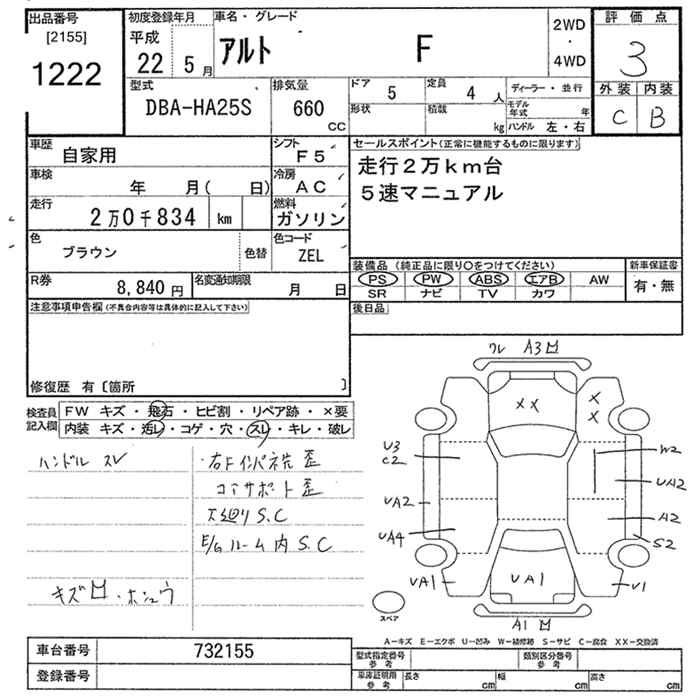 出品番号
[2155]
1222
初度登録年月
平成
22 5 月
車名・グレード
アルト F
2WD
・
4WD
評価点
3
外装 内装
C B
型式
DBA-HA25S
排気量
660
CC
ドア 5
定員 4 人
形状
積載 kg
ディーラー・並行
モデル年式 年
ハンドル 左・右
車歴
自家用
シフト
F5
車検
年 月( 日)
冷房
AC
走行
2万0千834 km
燃料
ガソリン
色
ブラウン
色替
色コード
ZEL
R券
8,840 円
名変通知期限
月 日
セールスポイント(正常に機能するものに限ります)
走行2万km台
5速マニュアル
装備品(純正品に限り○をつけてください)
PS PW ABS エアB AW
SR ナビ TV カワ
新車保証書
有・無
後日品
注意事項申告欄(不具合内容等は具体的に記入して下さい)
修復歴 有〔箇所 〕
検査員
記入欄
FW キズ・飛石・ヒビ割・リペア跡・×要
内装 キズ・汚レ・コゲ・穴・スレ・キレ・破レ
ハンドル スレ
右Fインパネ先 歪
コアサポート 歪
下廻り S.C
E/Gルーム内 S.C
キズ凹・ホシュウ
ワレ A3凹
XX
XX
U3
C2
W2
UA2
UA2
A2
UA4
S2
UA1
UA1
U1
A1凹
スペア
A－キズ E－エクボ U－凹み W－補修跡 S－サビ C－腐食 XX－交換済
車台番号 732155
登録番号
型式指定番号
参考
類別区分番号
参考
車庫証明用
参考
長さ cm
幅 cm
高さ cm